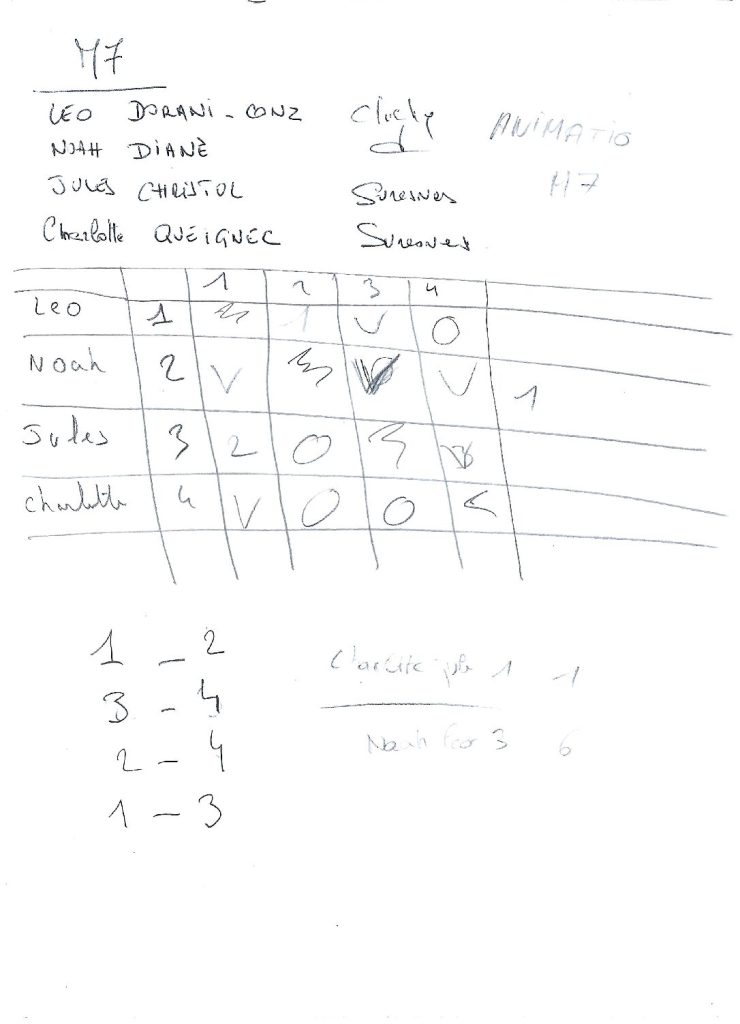 M7
LEO DORANI - CONZ Clichy ANIMATIO
NOAH DIANÈ d° M7
JULES CHRISTOL Suresnes
Charlotte QUEIGNEC Suresnes
1 2 3 4
Leo 1 1 V O
Noah 2 V V V 1
Jules 3 2 O
Charlotte 4 V O O <
1 - 2
3 - 4
2 - 4
1 - 3
1 1
Noah 3 6